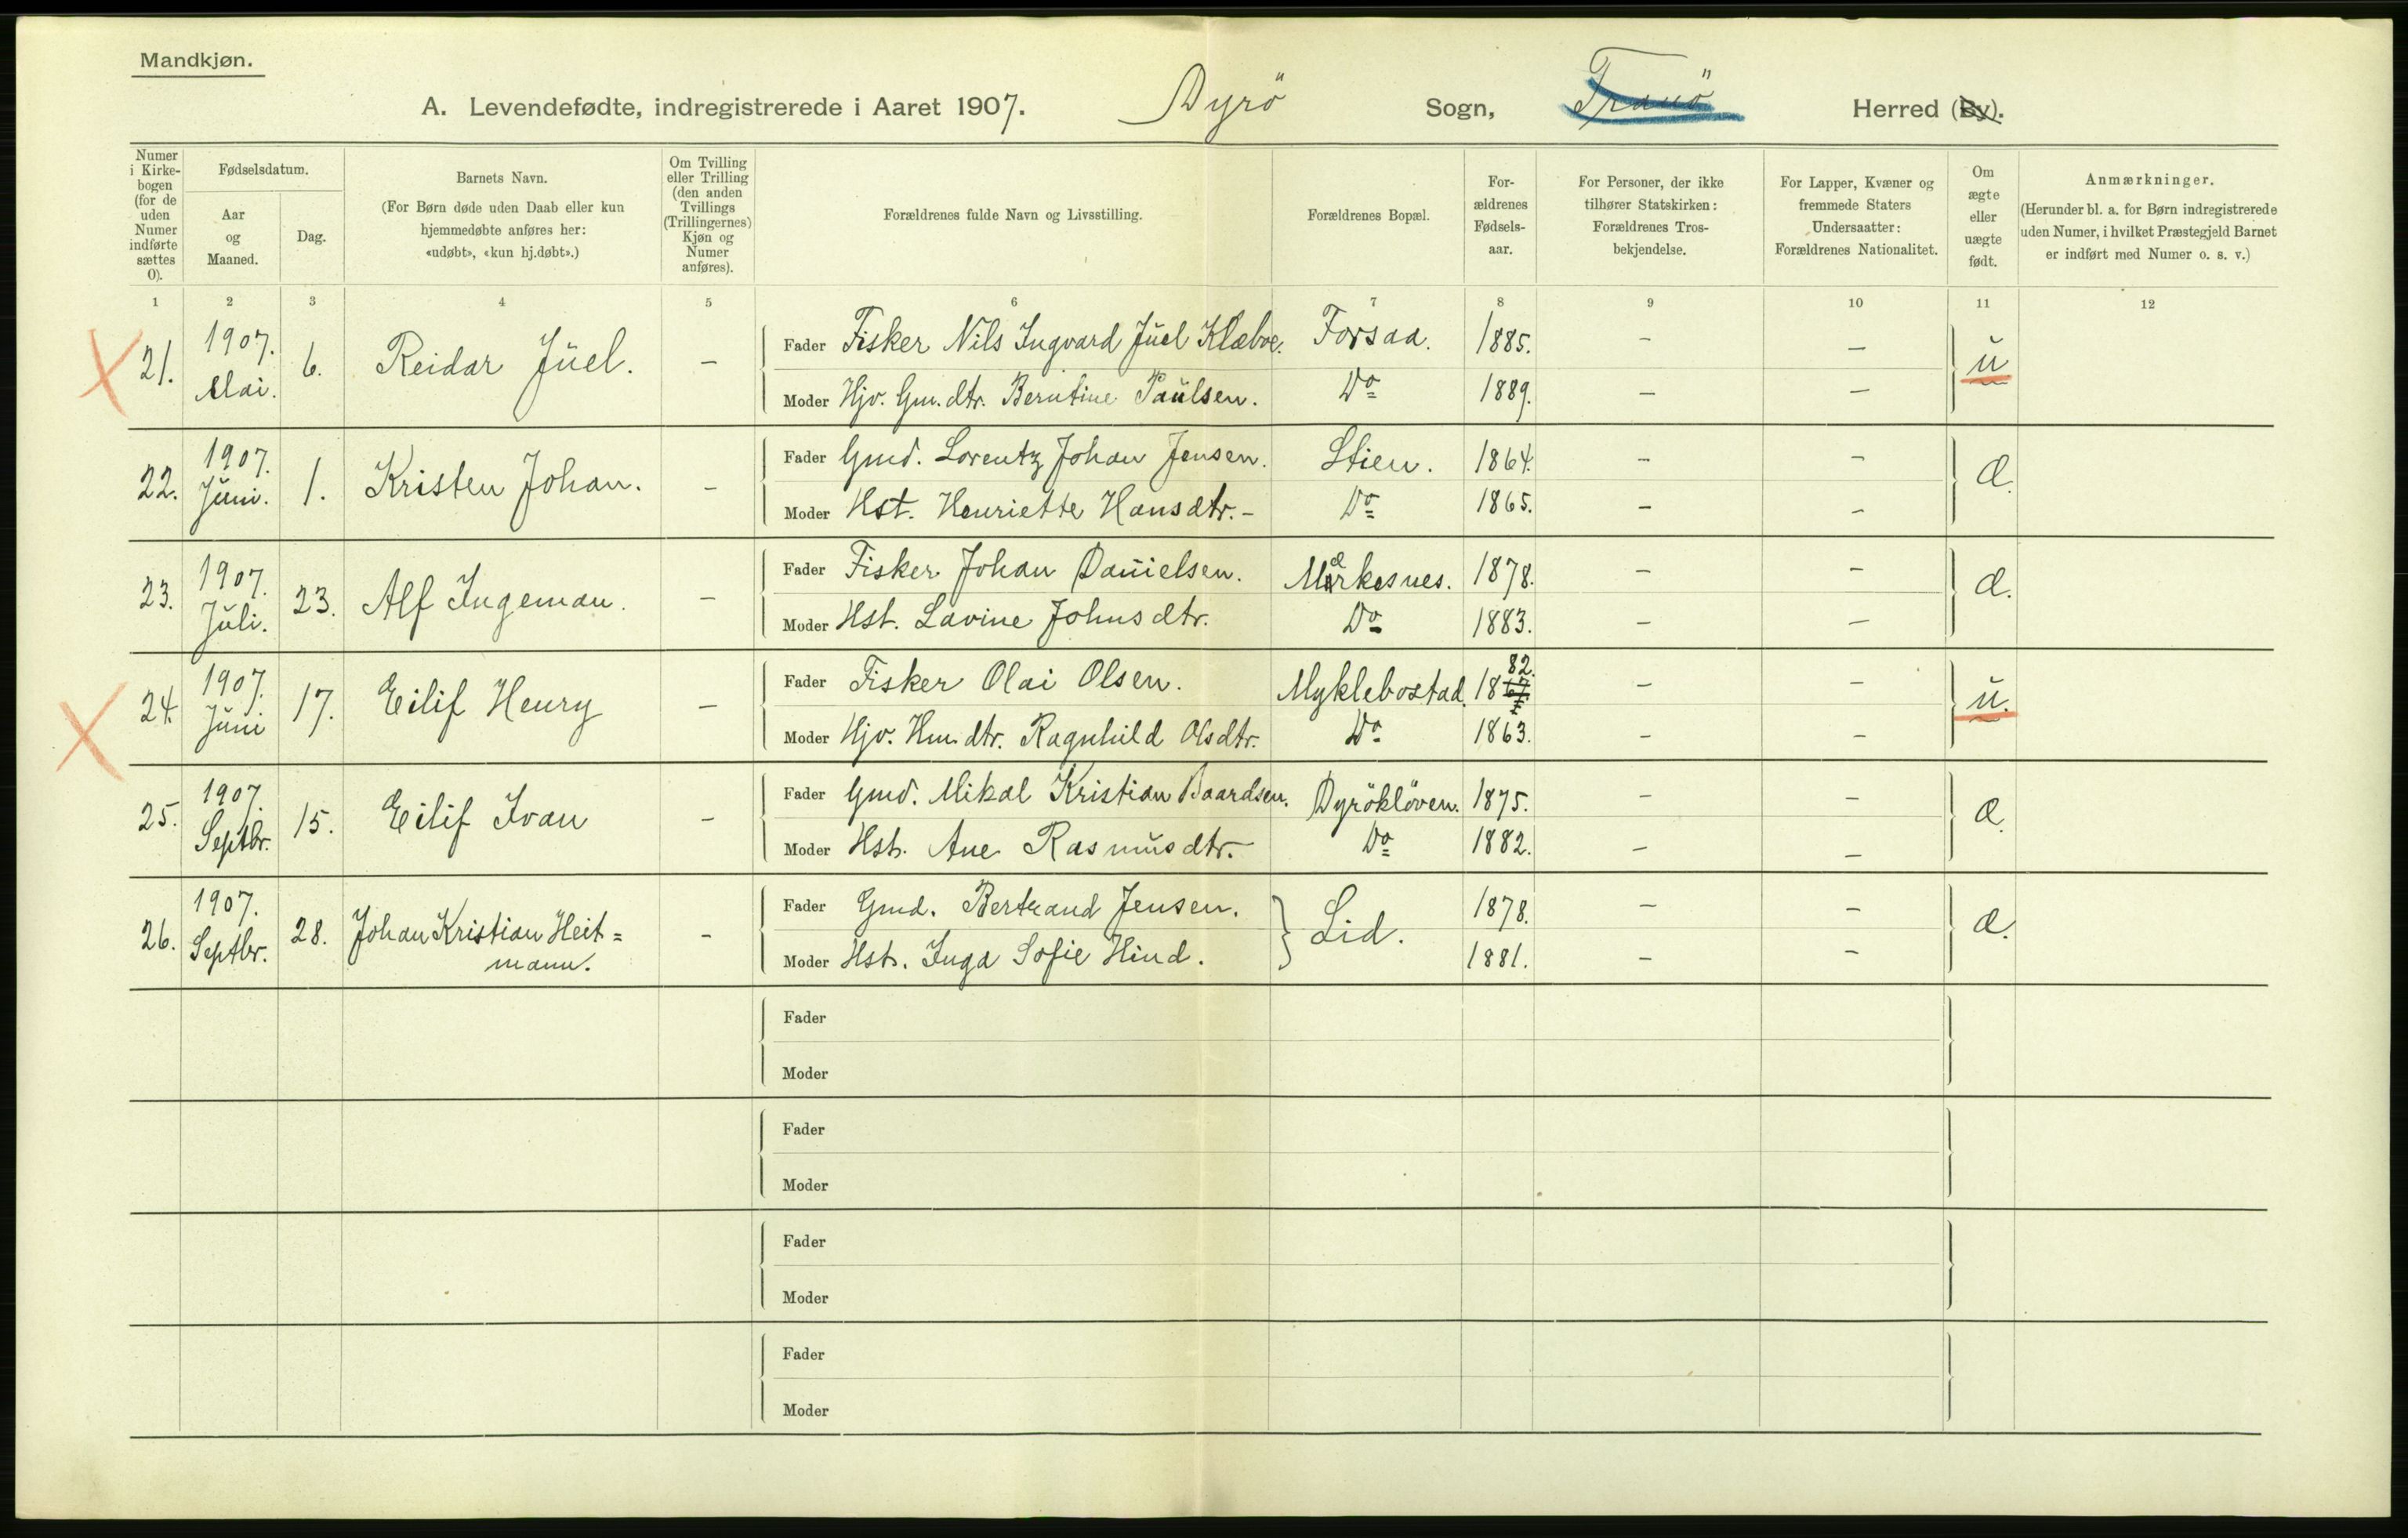 Mandkjøn.
A. Levendefødte, indregistrerede i Aaret 1907. Dyrö Sogn, Tranö Herred (By).
Numer i Kirkebogen (for de uden Numer indførte sættes 0).
Fødselsdatum.
Aar og Maaned.
Dag.
Barnets Navn.
(For Børn døde uden Daab eller kun
hjemmedøbte anføres her:
«udøbt», «kun hj.døbt».)
Om Tvilling
eller Trilling
(den anden
Tvillings
(Trillingernes)
Kjøn og
Numer
anføres).
Forældrenes fulde Navn og Livsstilling.
Forældrenes Bopæl.
For-
ældrenes
Fødsels-
aar.
For Personer, der ikke
tilhører Statskirken:
Forældrenes Tros-
bekjendelse.
For Lapper, Kvæner og
fremmede Staters
Undersaatter:
Forældrenes Nationalitet.
Om
ægte
eller
uægte
født.
Anmærkninger.
(Herunder bl. a. for Børn indregistrerede
uden Numer, i hvilket Præstegjeld Barnet
er indført med Numer o. s. v.)
1 2 3 4 5 6 7 8 9 10 11 12
21. 1907. Mai. 6. Reidar Juel. –
Fader Fisker Nils Ingvard Juel Klæboe. Forsaa. 1885. – – u
Moder Hjv. Gm. dtr. Berntine Paulsen. Do 1889. – –
22. 1907. Juni. 1. Kristen Johan. –
Fader Gmd. Lorentz Johan Jensen. Stien. 1864. – – æ.
Moder Hst. Henriette Hansdtr. – Do 1865. – –
23. 1907. Juli. 23. Alf Ingeman. –
Fader Fisker Johan Danielsen. Mærkesnes. 1878. – – æ.
Moder Hst. Lavine Johnsdtr. Do 1883. – –
24. 1907. Juni 17. Eilif Henry –
Fader Fisker Olai Olsen. Myklebostad. 1882. – – u.
Moder Hjv. Hm. dtr. Ragnhild Olsdtr. Do 1863. – –
25. 1907. Septbr. 15. Eilif Ivan –
Fader Gmd. Mikal Kristian Baardsen. Dyröklöven. 1875. – – æ.
Moder Hst. Ane Rasmusdtr. – Do 1882. – –
26. 1907. Septbr. 28. Johan Kristian Heit=
mann. –
Fader Gmd. Bertrand Jensen. Lid. 1878. – – æ.
Moder Hst. Inga Sofie Hind. 1881. – –
Fader
Moder
Fader
Moder
Fader
Moder
Fader
Moder